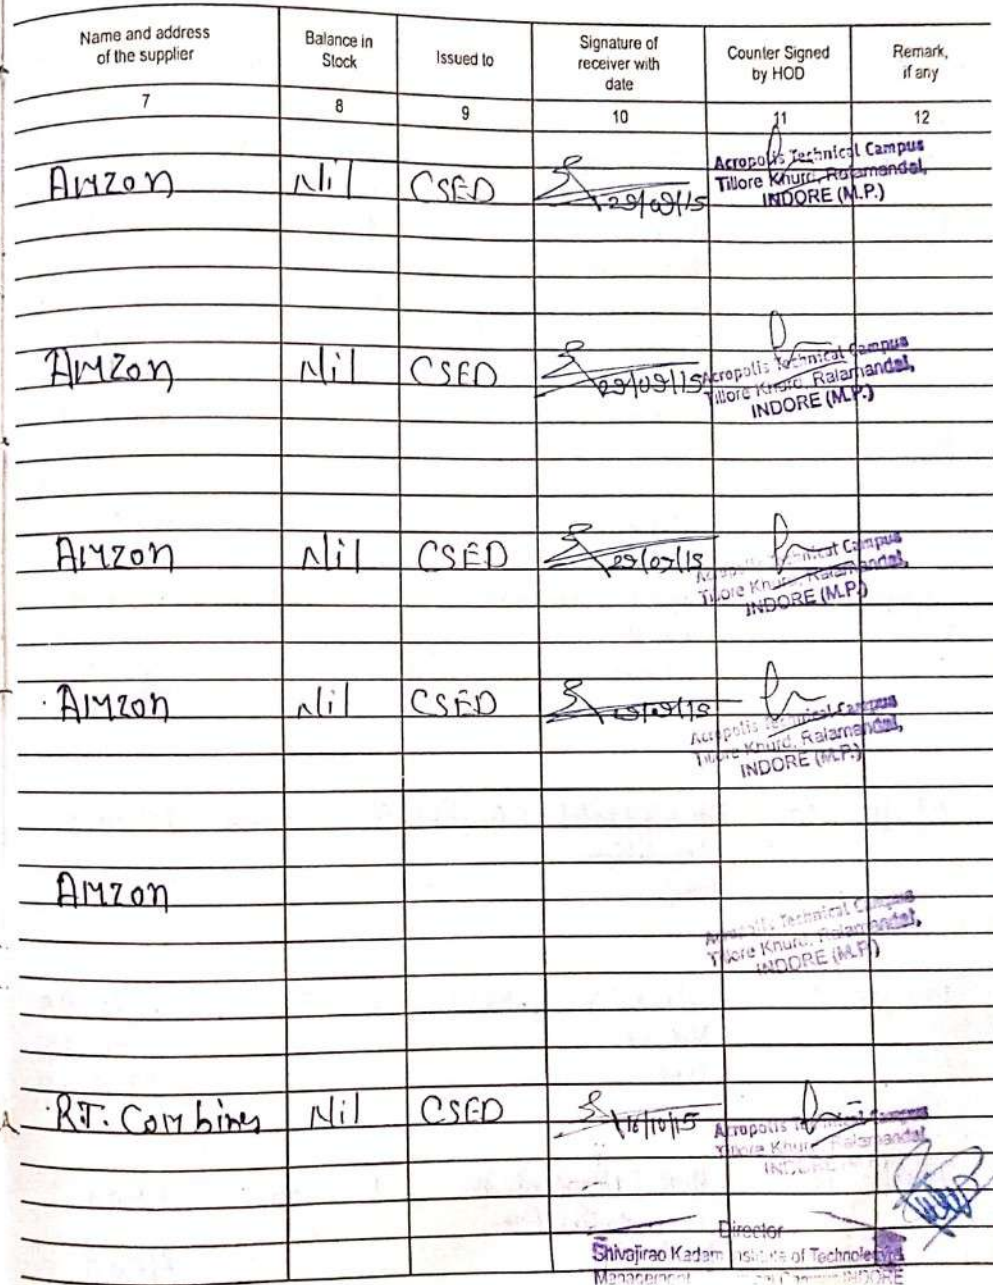 Name and address of the supplier
Balance in Stock
Issued to
Signature of receiver with date
Counter Signed by HOD
Remark, if any
7 8 9 10 11 12
Amzon Nil CSED 29/09/15
Acropolis Technical Campus
Tillore Khurd, Ralamandal,
INDORE (M.P.)
Amzon Nil CSED 29/09/15
Acropolis Technical Campus
Tillore Khurd, Ralamandal,
INDORE (M.P.)
Amzon Nil CSED
Acropolis Technical Campus
Tillore Khurd, Ralamandal,
INDORE (M.P.)
Amzon Nil CSED
Acropolis Technical Campus
Tillore Khurd, Ralamandal,
INDORE (M.P.)
Amzon
Acropolis Technical Campus
Tillore Khurd, Ralamandal,
INDORE (M.P.)
R.T. Combines Nil CSED 16/10/15
Acropolis Technical Campus
Tillore Khurd, Ralamandal,
INDORE
Director
Shivajirao Kadam Institute of Technology &
Management Campus INDORE